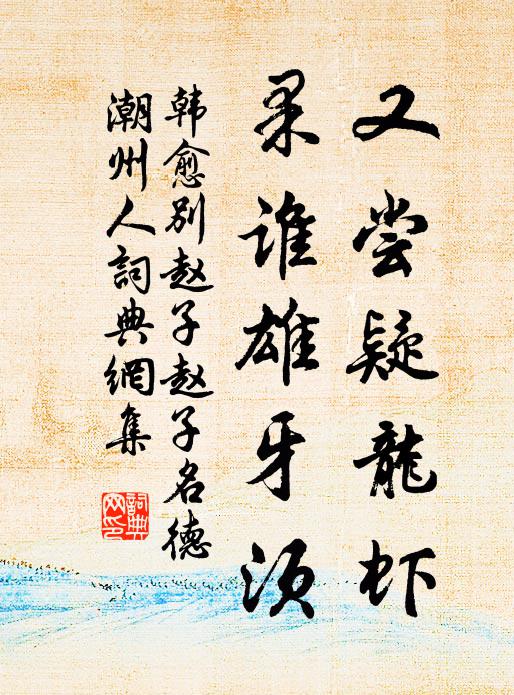 又尝疑龍虾
果谁雄牙须
韩愈别赵子赵子名德
潮州人詞典網集
詞典網印